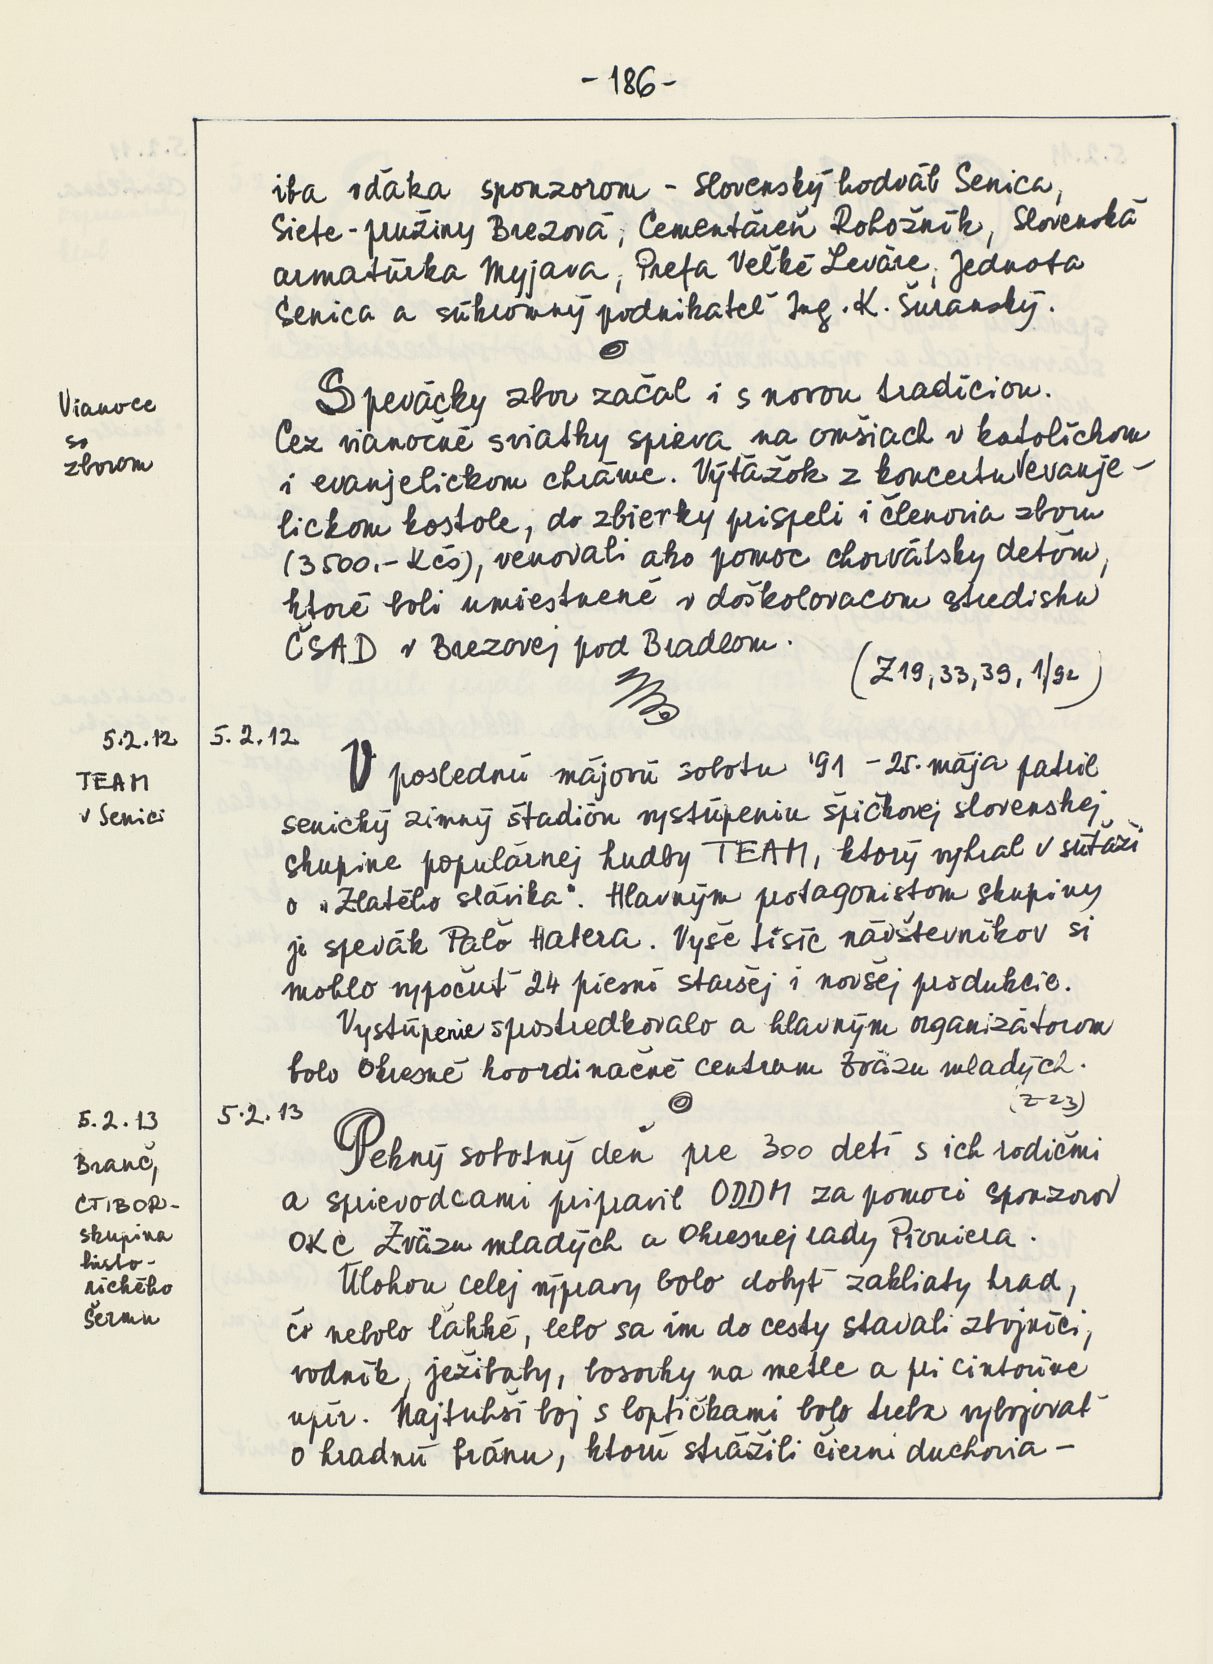 - 186 -
iba vďaka sponzorom - Slovenský hodváb Senica,
Siete - pružiny Brezová, Cementáreň Rohožník, Slovenská
armatúrka Myjava, Prefa Veľké Leváre, Jednota
Senica a súkromný podnikateľ Ing. K. Šuranský.
Vianoce
so
zborom
Spevácky zbor začal i s novou tradíciou.
Cez vianočné sviatky spieva na omšiach v katolíckom
i evanjelickom chráme. Výťažok z koncertu v evanje-
lickom kostole, do zbierky prispeli i členovia zboru
(3 500.- Kčs), venovali ako pomoc chorvátsky deťom,
ktoré boli umiestnené v doškolovacom stredisku
ČSAD v Brezovej pod Bradlom.
(Z19, 33, 39, 1/92)
5.2.12
TEAM
v Senici
5.2.12
V poslednú májovú sobotu '91 - 25. mája patril
senický zimný štadión vystúpeniu špičkovej slovenskej
skupine populárnej hudby TEAM, ktorý vyhral v súťaži
o „Zlatého slávika". Hlavným protagonistom skupiny
je spevák Paľo Habera. Vyše tisíc návštevníkov si
mohlo vypočuť 24 piesní staršej i novšej produkcie.
Vystúpenie sprostredkovalo a hlavným organizátorom
bolo Okresné koordinačné centrum Zväzu mladých.
(Z 23)
5.2.13
Branč,
CTIBOR-
skupina
histo-
rického
šermu
5.2.13
Pekný sobotný deň pre 300 detí s ich rodičmi
a sprievodcami pripravil ODDM za pomoci sponzorov
OKC Zväzu mladých a Okresnej rady Pioniera.
Úlohou celej výpravy bolo dobyť zakliaty hrad,
čo nebolo ľahké, lebo sa im do cesty stavali zbojníci,
vodník, ježibaby, bosorky na metle a pri cintoríne
upír. Najtuhší boj s loptičkami bolo treba vybojovať
o hradnú bránu, ktorú strážili čierni duchovia -